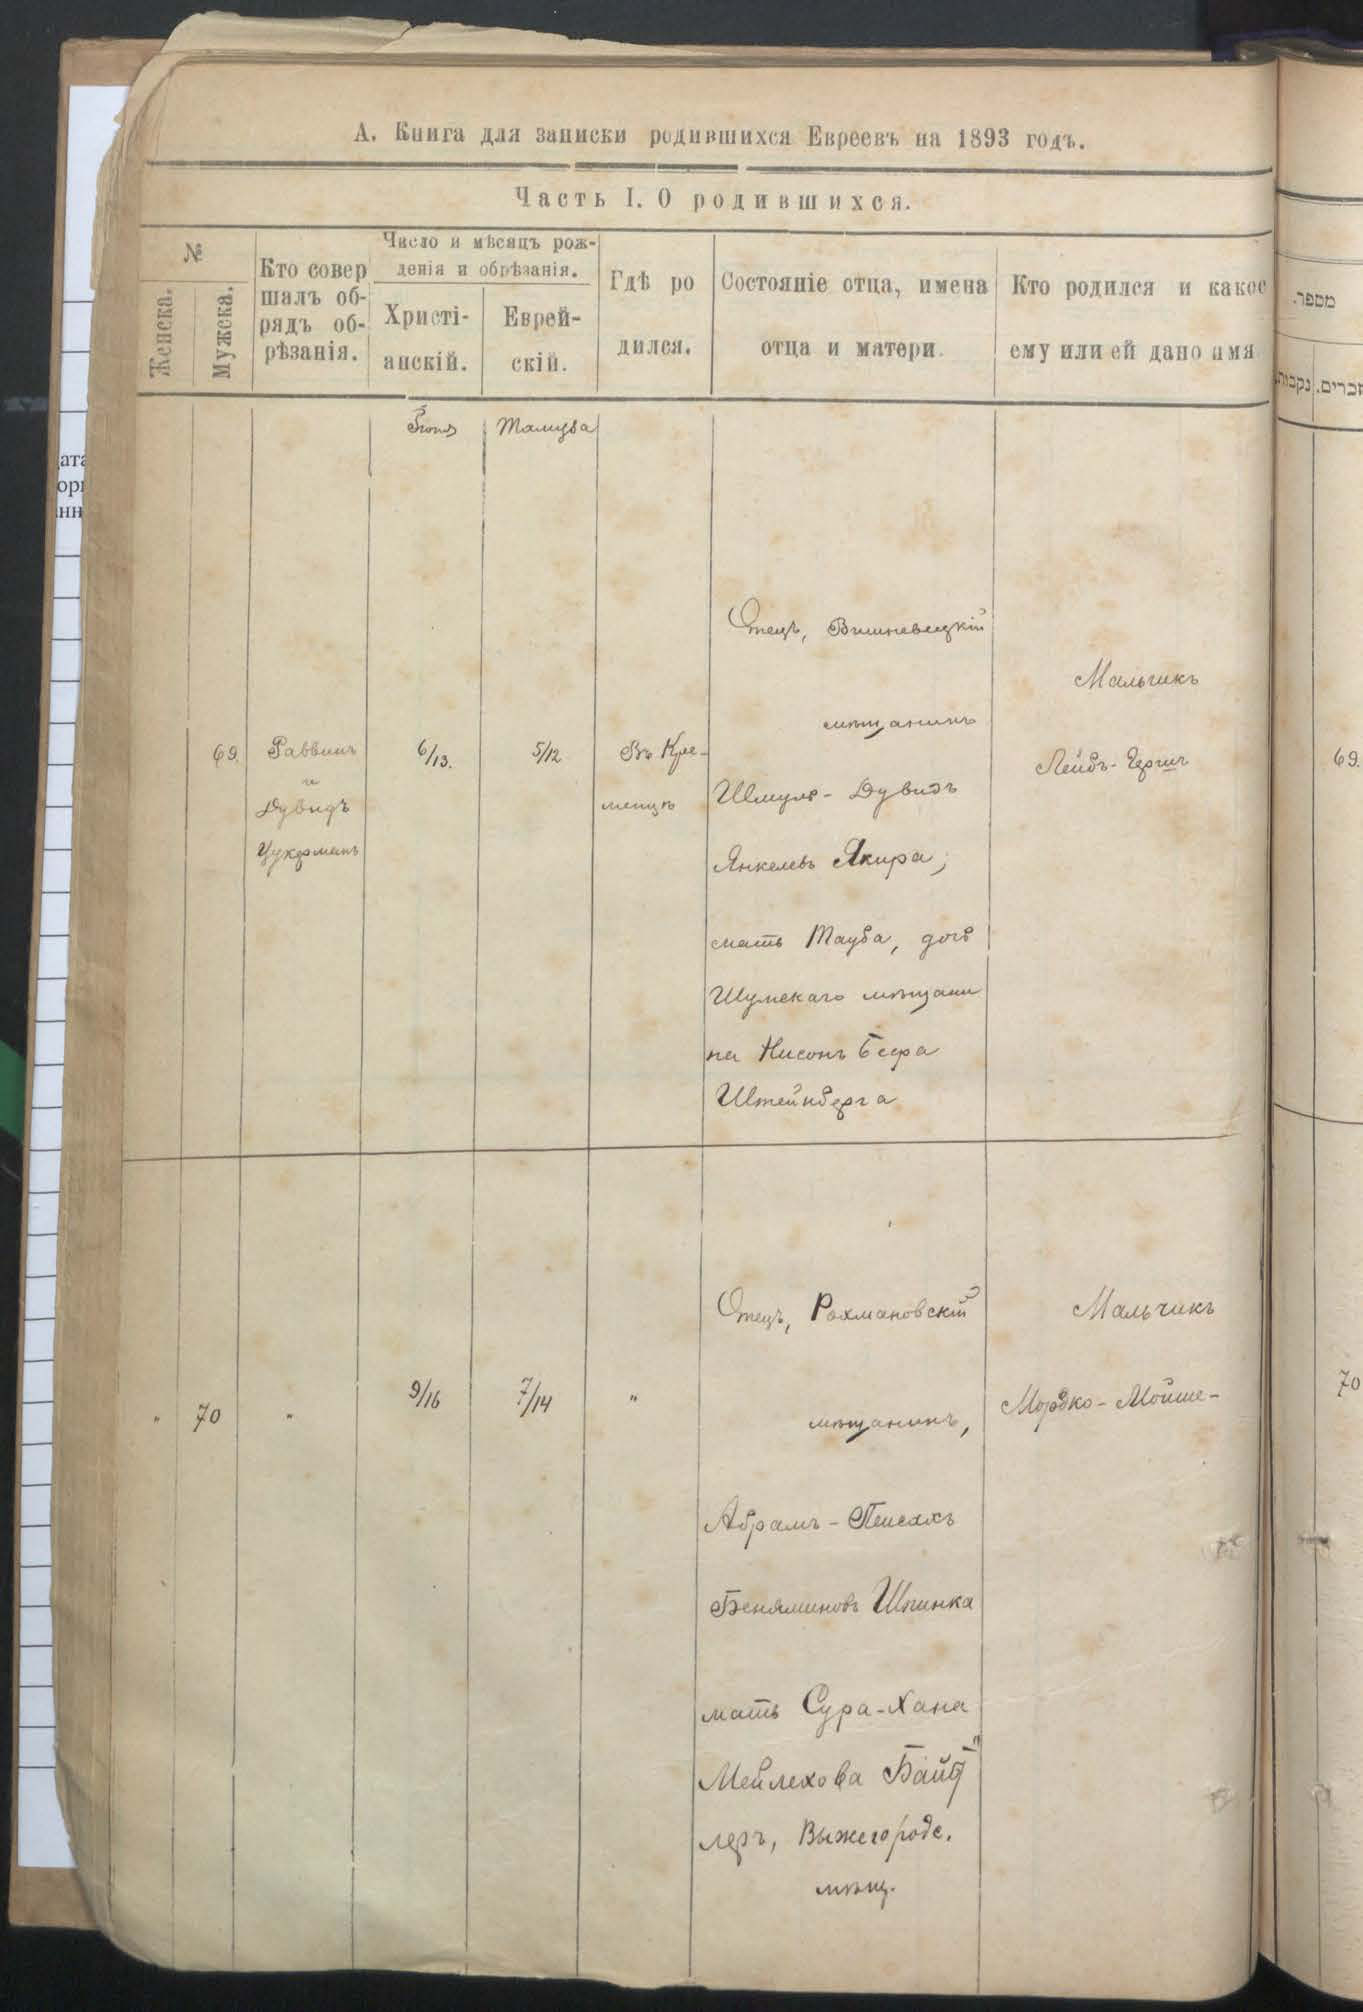 А. Книга для записки родившихся Евреевъ на 1893 годъ.
Часть I. О родившихся.
№
Женска.
Мужска.
Кто совер
шалъ об-
рядъ об-
рѣзанія.
Число и мѣсяцъ рож-
денія и обрѣзанія.
Христі-
анскій.
Еврей-
скій.
Гдѣ ро
дился.
Состояніе отца, имена
отца и матери.
Кто родился и какое
ему или ей дано имя
מספר.
נקבות.
זכרים.
Тамуза
69.
Раввинъ
и
Дувидъ
Цукерманъ
6/13.
5/12
Въ Кре-
менцѣ
Отецъ, Вишневецкій
мѣщанинъ
Шмуль-Дувидъ
Янкелевъ Якира,
мать Тауба, дочь
Шумскаго мѣщани
на Нисонъ Бера
Штейнберга
Мальчикъ
Лейбъ-Гершъ
69.
"
70
"
9/16
7/14
"
Отецъ, Рахмановскій
мѣщанинъ,
Абрамъ-Пейсахъ
Беняминовъ Шпинка
мать Сура-Хана
Мейлехова
леръ, Выжегородс.
мѣщ.
Мальчикъ
Мордко-Мойше-
70
ата
ори
нн